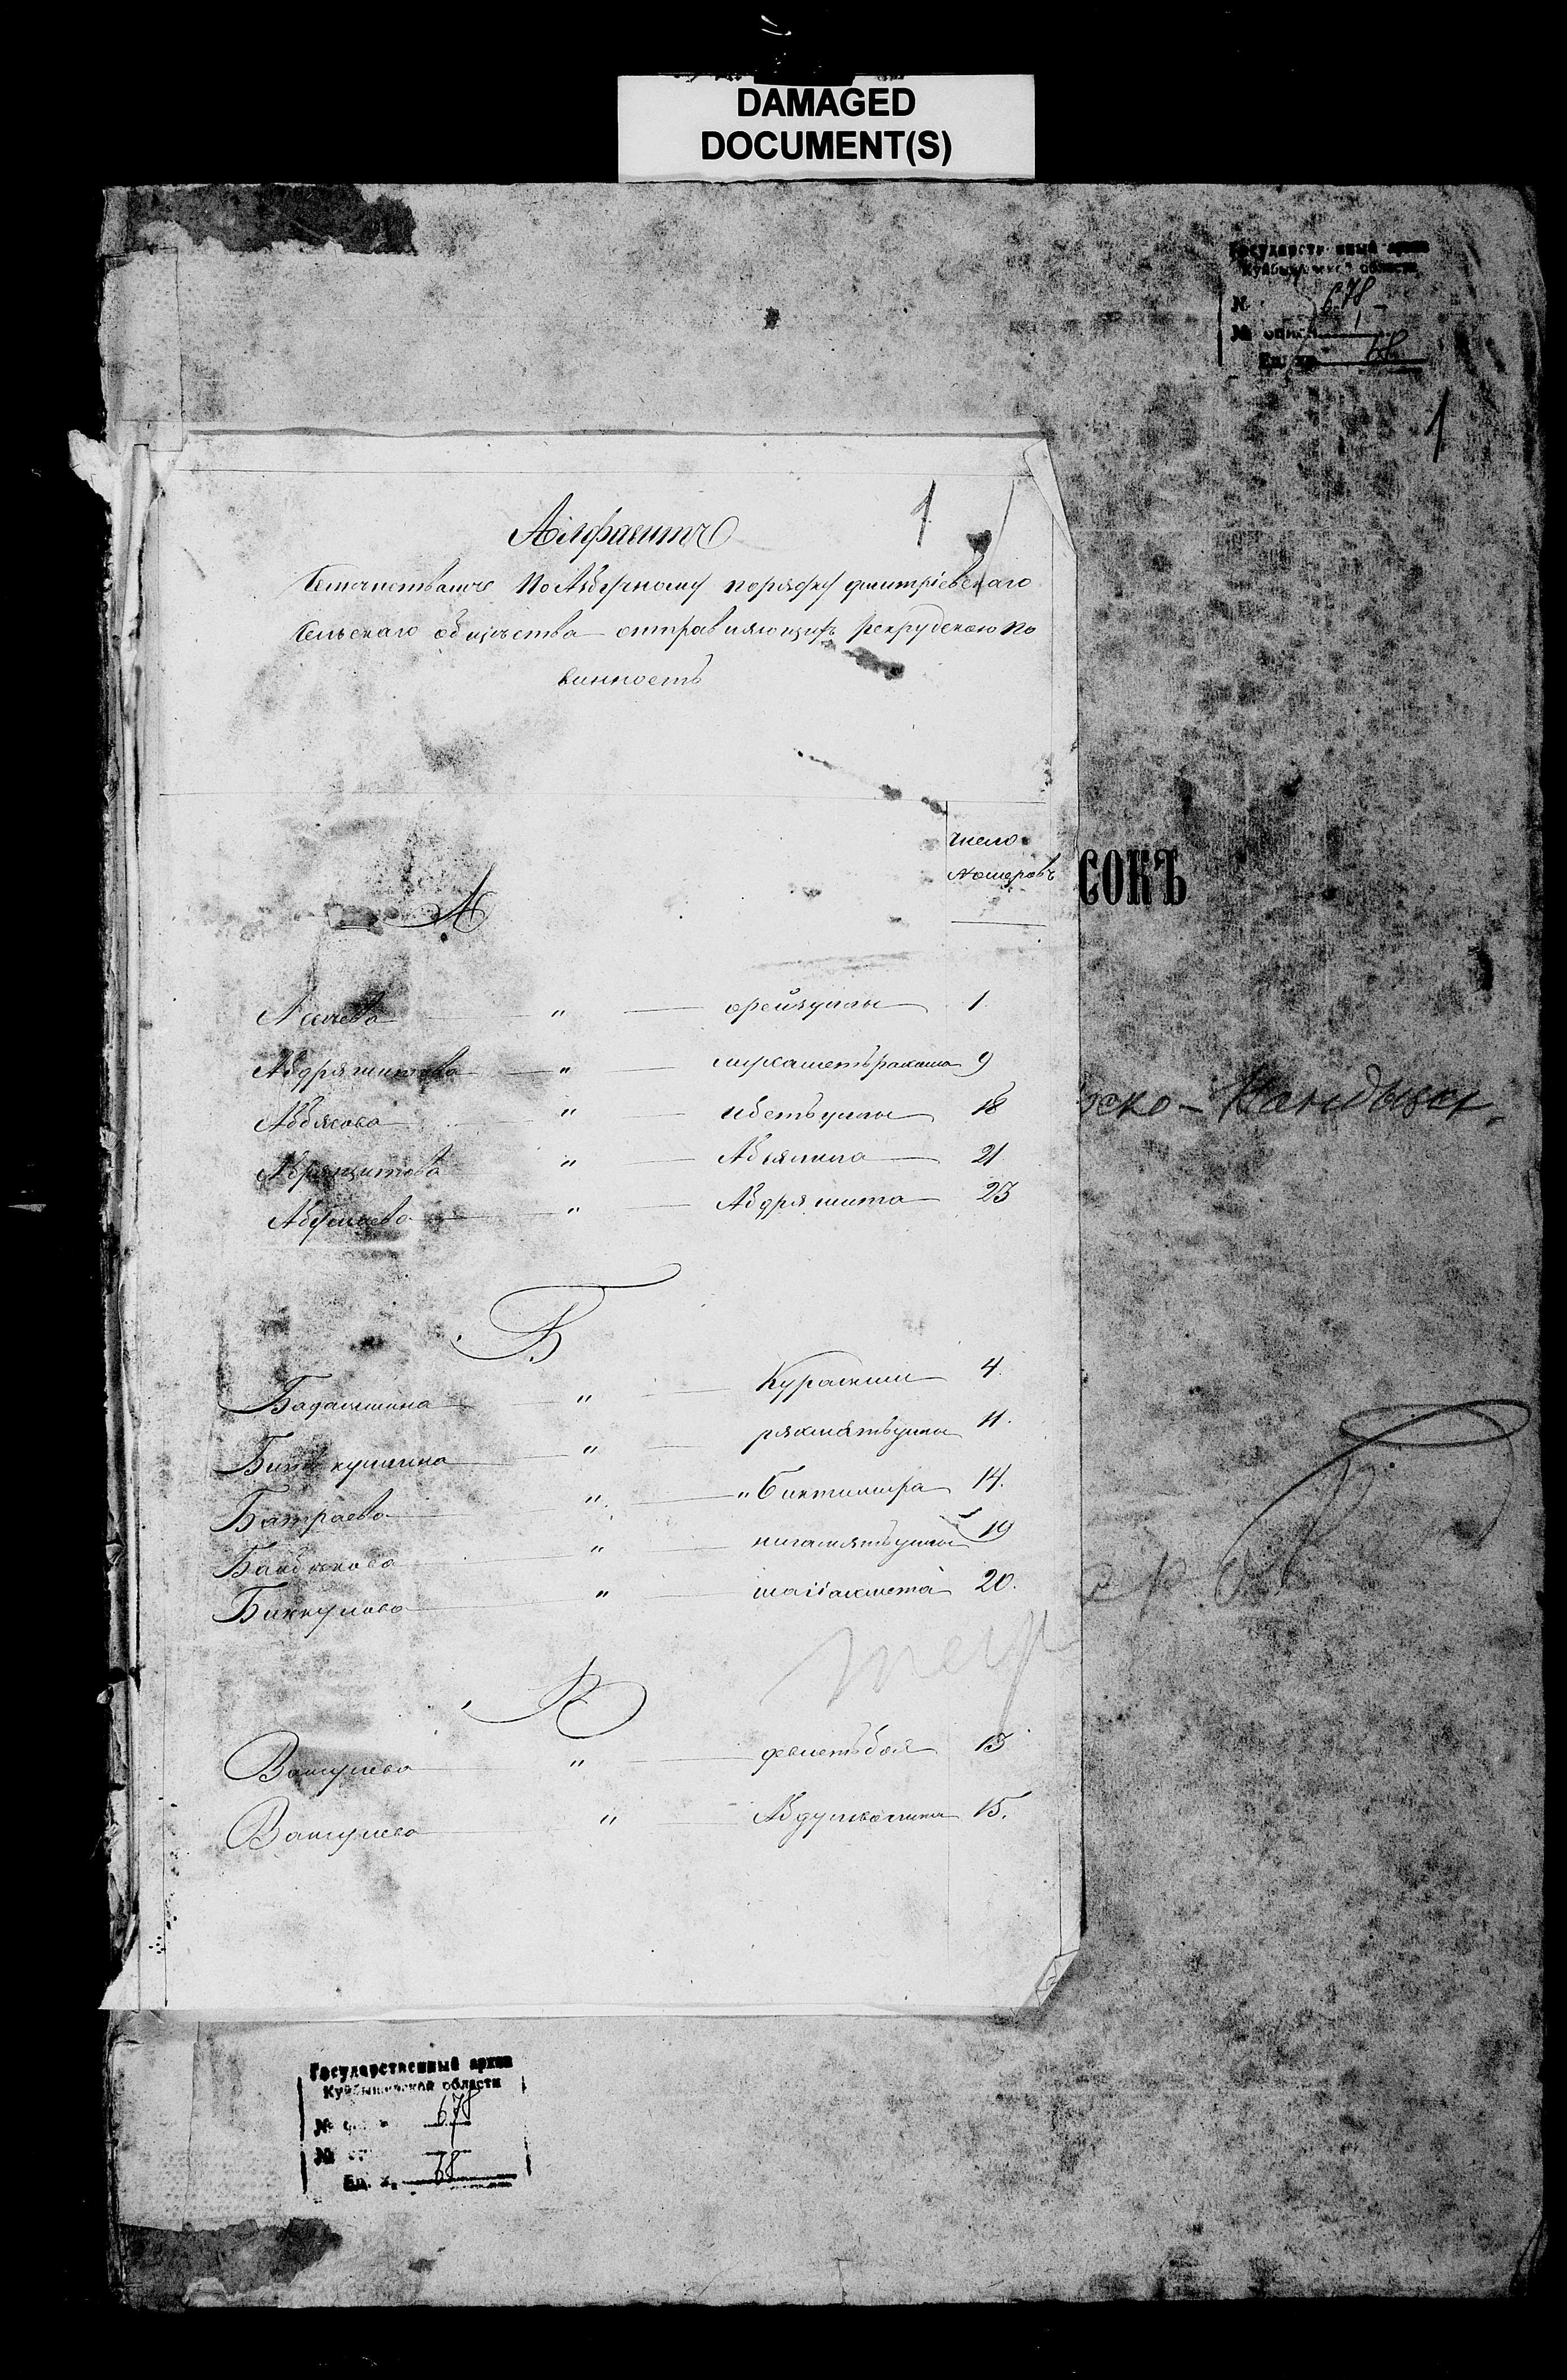 DAMAGED
DOCUMENT(S)
Государственный архив
Куйбышевской области
№ 678
№ описи 1
Ед. хр. 68
1
1
Алфавитъ
Семействамъ по Азбучному порядку дмитріевскаго
Сельскаго общества отправляющихъ рекрудскою по
винность
число
Номеровъ
СОКЪ
А
Асѣева " фейзуллы 1.
Абдряшитова " мухаметьрахима 9
Аббясова " ибетуллы 18
Абряшитова " Абзялила 21
Абдулаева " Абдряшита 23
Б
Бадамшина " Курамши 4.
Бикькулина " ряхматуллы 11.
Батраева " Биктимира 14.
Байбякова " нигаметуллы 19
Биккулова " шаиахмета 20.
В
Вакулева " девлетьбая 13
Вакулева " Абдулвалиха 15.
Государственный архив
Куйбышевской области
№ 678
№
Ед. х. 68